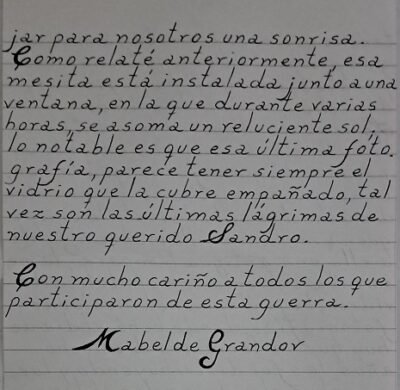 jar para nosotros una sonrisa.
Como relaté anteriormente, esa
mesita está instalada junto a una
ventana, en la que durante varias
horas, se asoma un reluciente sol,
lo notable es que esa última foto.
grafía, parece tener siempre el
vidrio que la cubre empañado, tal
vez son las últimas lágrimas de
nuestro querido Sandro.
Con mucho cariño a todos los que
participaron de esta guerra.
Mabel de Grandov